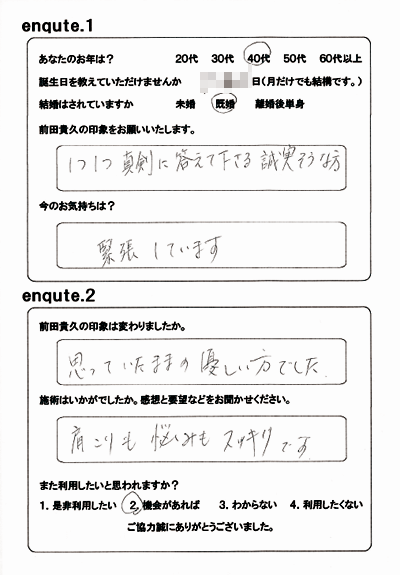 enqute.1
あなたのお年は? 20代 30代 40代 50代 60代以上
誕生日を教えていただけませんか 日(月だけでも結構です。)
結婚はされていますか 未婚 既婚 離婚後単身
前田貴久の印象をお願いいたします。
1つ1つ真剣に答えて下さる誠実そうな方
今のお気持ちは?
緊張しています
enqute.2
前田貴久の印象は変わりましたか。
思っていたままの優しい方でした.
施術はいかがでしたか。感想と要望などをお聞かせください。
肩こりも悩みもスッキリです
また利用したいと思われますか?
1. 是非利用したい 2. 機会があれば 3. わからない 4. 利用したくない
ご協力誠にありがとうございました。